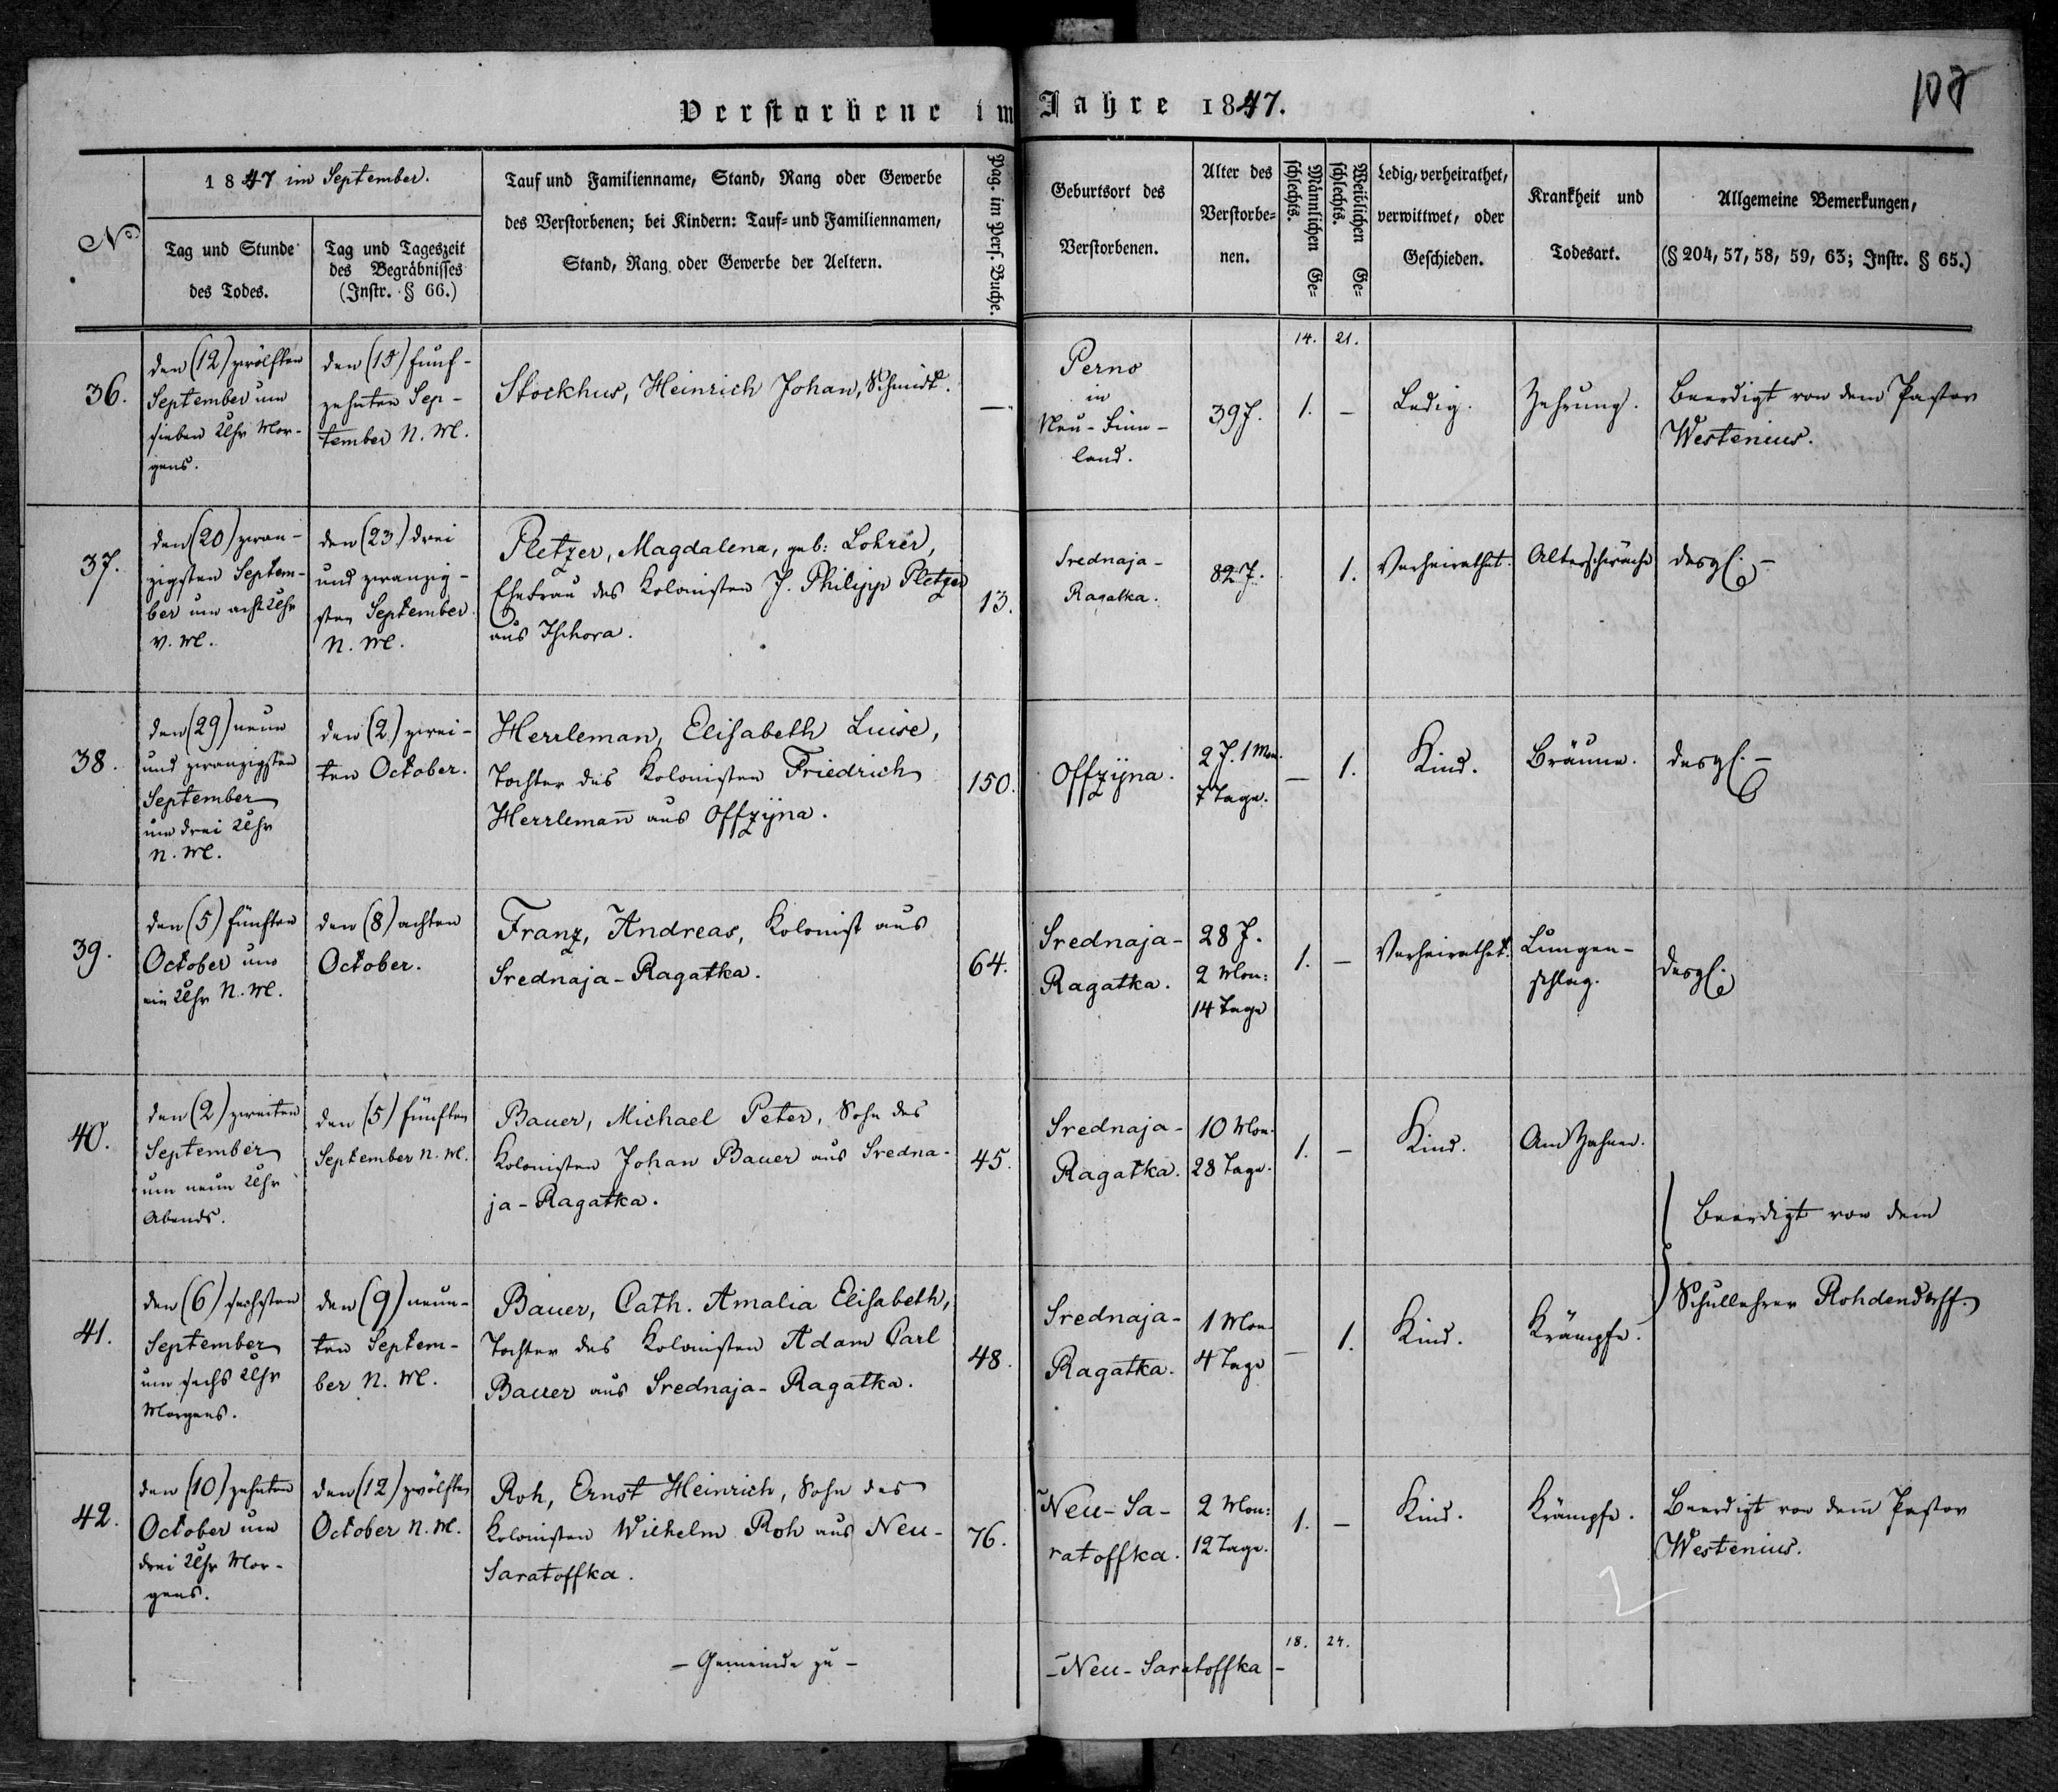 Verstorbene im Jahre 1847.
108
No
1847 im September.
Tag und Stunde
des Todes.
Tag und Tageszeit
des Begräbnisses
(Instr. § 66.)
Tauf und Familienname, Stand, Rang oder Gewerbe
des Verstorbenen; bei Kindern: Tauf= und Familiennamen,
Stand, Rang oder Gewerbe der Aeltern.
Pag. im Pers. Buche.
Geburtsort des
Verstorbenen.
Alter des
Verstorbe=
nen.
Männlichen Ge=
schlechts.
Weiblichen Ge=
schlechts.
Ledig, verheirathet,
verwittwet, oder
Geschieden.
Krankheit und
Todesart.
Allgemeine Bemerkungen,
(§ 204, 57, 58, 59, 63; Instr. § 65.)
36.
den (12) zwölften
September um
sieben Uhr Mor-
gens.
den (15) fünf-
zehnten Sep-
tember N. M.
Stockhus, Heinrich Johan, Schmidt.
—
Perno
in
Neu-Finn-
land.
39 J.
14. 21.
1. –
Ledig.
Zehrung.
Beerdigt von dem Pastor
Westenius.
37.
den (20) zwan-
zigsten Septem-
ber um acht Uhr
V. M.
den (23) drei
und zwanzig-
sten September
N. M.
Pletzer, Magdalena, geb: Lohrer,
Ehefrau des Kolonisten J. Philipp Pletzer
aus Ischora.
13.
Srednaja-
Ragatka.
82 J.
1.
Verheirathet.
Altersschwäche
desgl. –
38.
den (29) neun
und zwanzigsten
September
um drei Uhr
N. M.
den (2) zwei-
ten October.
Herrleman, Elisabeth Luise,
Tochter des Kolonisten Friedrich
Herrleman̄ aus Offzÿna.
150.
Offzÿna.
2 J. 1 Mon.
7 Tage.
– 1.
Kind.
Bräune.
desgl. –
39.
den (5) fünften
October um
ein Uhr N. M.
den (8) achten
October.
Franz, Andreas, Kolonist aus
Srednaja-Ragatka.
64.
Srednaja-
Ragatka.
28 J.
2 Mon:
14 Tage
1. –
Verheirathet.
Lungen-
schlag.
desgl.
40.
den (2) zweiten
September
um neun Uhr
Abends.
den (5) fünften
September N. M.
Bauer, Michael Peter, Sohn des
Kolonisten Johan Bauer aus Sredna-
ja-Ragatka.
45.
Srednaja-
Ragatka.
10 Mon.
28 Tage.
1. –
Kind.
Am Zahnen.
Beerdigt von dem
Schullehrer Rohdendorff.
41.
den (6) sechsten
September
um sechs Uhr
Morgens.
den (9) neun-
ten Septem-
ber N. M.
Bauer, Cath. Amalia Elisabeth,
Tochter des Kolonisten Adam Carl
Bauer aus Srednaja-Ragatka.
48.
Srednaja-
Ragatka.
1 Mon.
4 Tage
– 1.
Kind.
Krämpfe.
42.
den (10) zehnten
October um
drei Uhr Mor-
gens.
den (12) zwölften
October N. M.
Roh, Ernst Heinrich, Sohn des
Kolonisten Wilhelm Roh aus Neu-
Saratoffka.
76.
Neu-Sa-
ratoffka.
2 Mon:
12 Tage.
1. –
Kind.
Krämpfe.
Beerdigt von dem Pastor
Westenius.
2
– Gemeinde zu –
– Neu-Saratoffka –
18. 24.